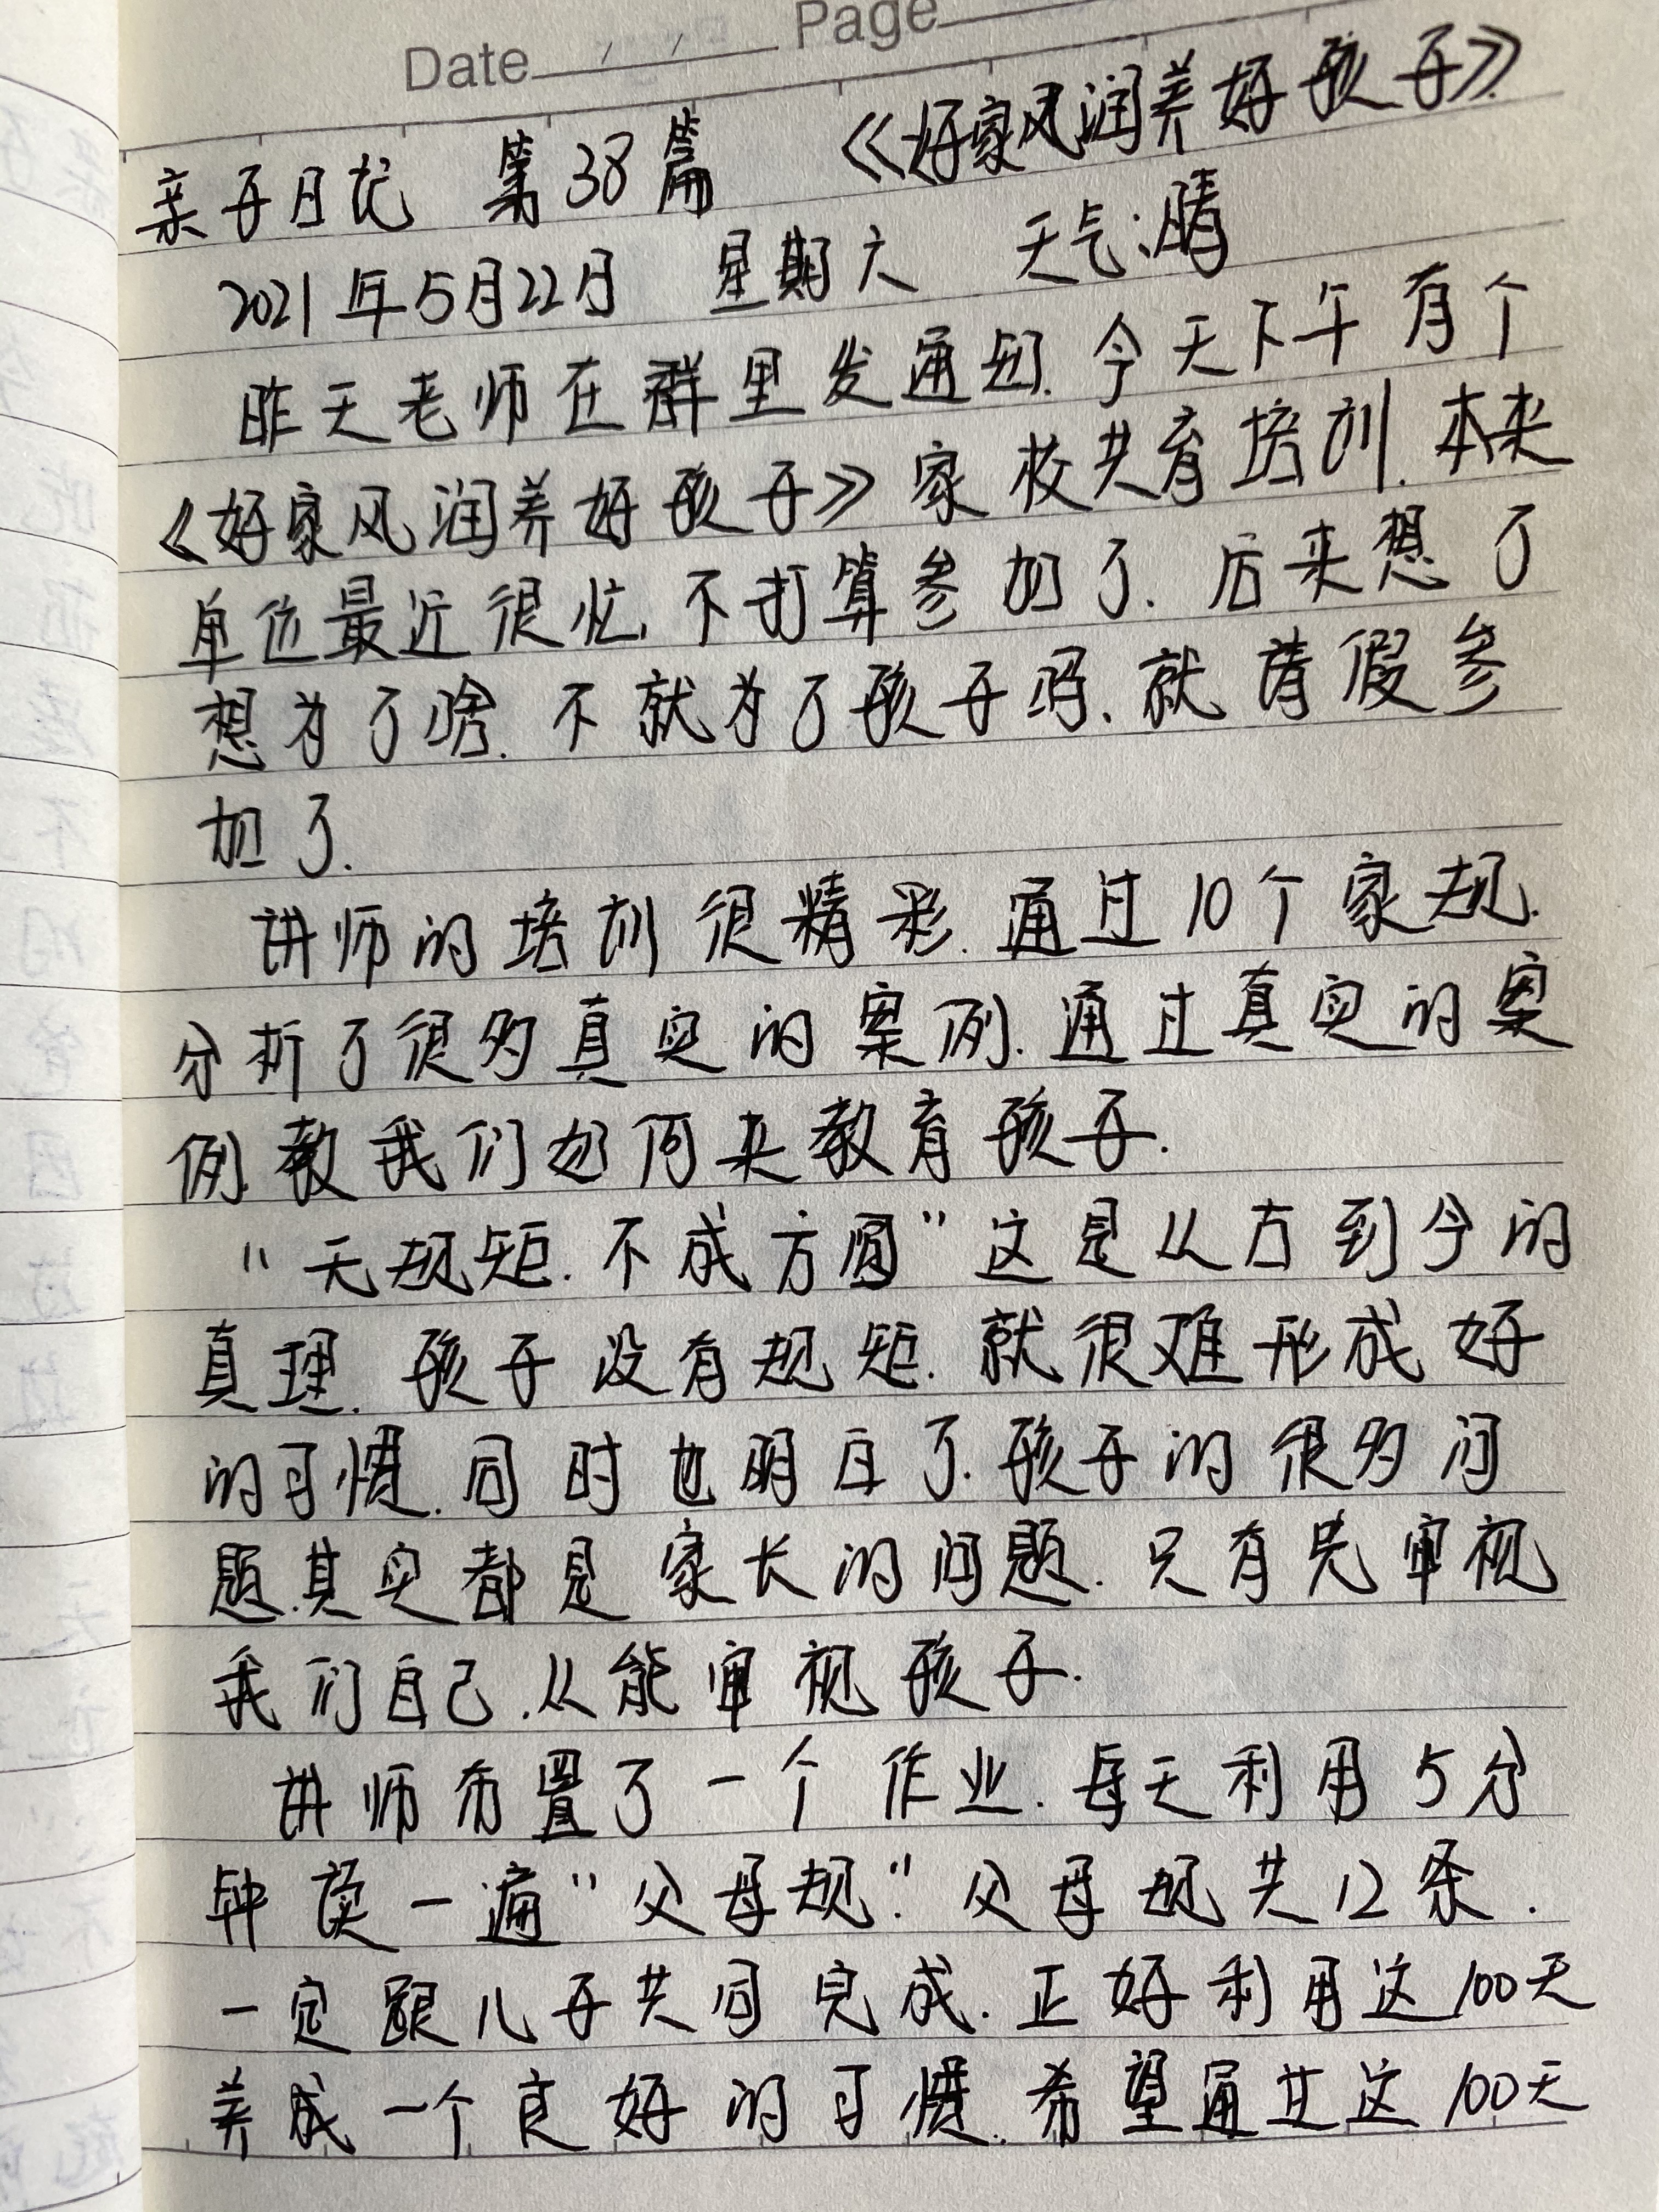 Date / / Page
亲子日记 第38篇 《好家风润养好孩子》
2021年5月22日 星期六 天气:晴
昨天老师在群里发通知.今天下午有个
《好家风润养好孩子》家校共育培训.本来
单位最近很忙,不打算参加了.后来想了
想为了啥.不就为了孩子吗.就请假参
加了.
讲师的培训很精彩.通过10个家规.
分析了很多真实的案例.通过真实的案
例.教我们如何来教育孩子.
"无规矩.不成方圆"这是从古到今的
真理.孩子没有规矩.就很难形成好
的习惯.同时也明白了.孩子的很多问
题.其实都是家长的问题.只有先审视
我们自己.从能审视孩子.
讲师布置了一个作业.每天利用5分
钟读一遍"父母规".父母规共12条.
一定跟儿子共同完成.正好利用这100天
养成一个良好的习惯.希望通过这100天